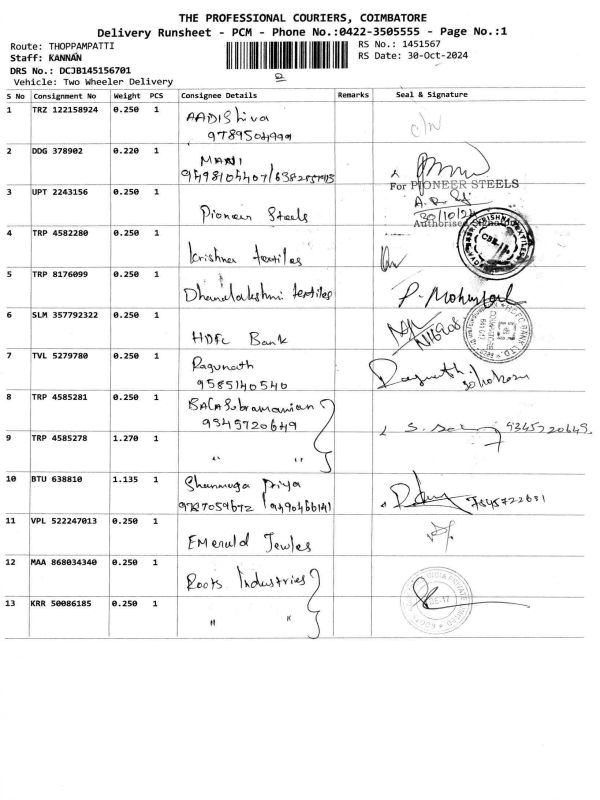 THE PROFESSIONAL COURIERS, COIMBATORE
Delivery Runsheet - PCM - Phone No.:0422-3505555 - Page No.:1
Route: THOPPAMPATTI RS No.: 1451567
Staff: KANNAN RS Date: 30-Oct-2024
DRS No.: DCJB145156701
Vehicle: Two Wheeler Delivery
S No Consignment No Weight PCS Consignee Details Remarks Seal & Signature
1 TRZ 122158924 0.250 1 AADIShiva
c/n
2 DDG 378902 0.220 1 MANI
For PIONEER STEELS
3 UPT 2243156 0.250 1 Pioneer Steels
30/10/24
Authorised
4 TRP 4582280 0.250 1 Krishna textiles
5 TRP 8176099 0.250 1 Dhanalakshmi textiles
6 SLM 357792322 0.250 1 HDFC Bank
7 TVL 5279780 0.250 1 Ragunath
9585140540
8 TRP 4585281 0.250 1 BALASubramanian
9345720649 9345720649
9 TRP 4585278 1.270 1 " "
10 BTU 638810 1.135 1 Shanmuga Priya
11 VPL 522247013 0.250 1 EMerald Jewles
12 MAA 868034340 0.250 1 Roots Industries
13 KRR 50086185 0.250 1 " "